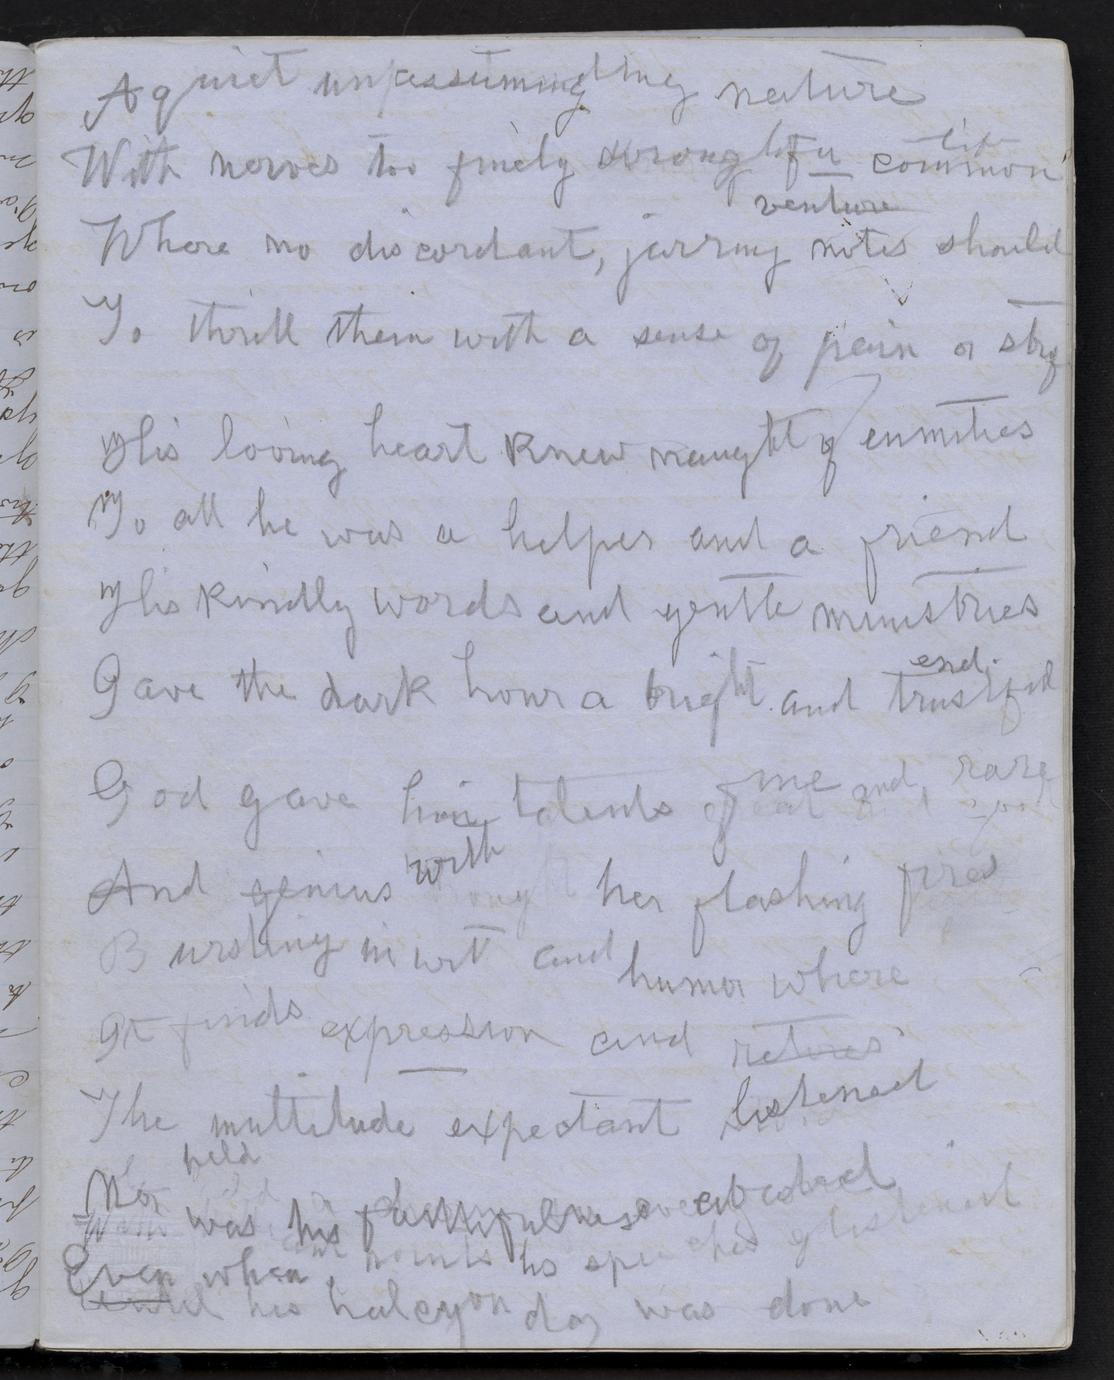 A quiet unpassuming nature
With nerves too finely strong for common life
Where no discordant, jarring notes should venture
To thrill them with a sense of pain or strife
His loving heart knew naught of enmities
To all he was a helper and a friend
His kindly words and gentle ministries
Gave the dark hour a bright and trustful end.
God gave him talents and rare
And genius with her flashing fires
Bursting in wit and humor where
It finds expression and retires
The multitude expectant listened
held
Nor was his faithfulness
Even when points his speeches glistened
Until his halcyon day was done